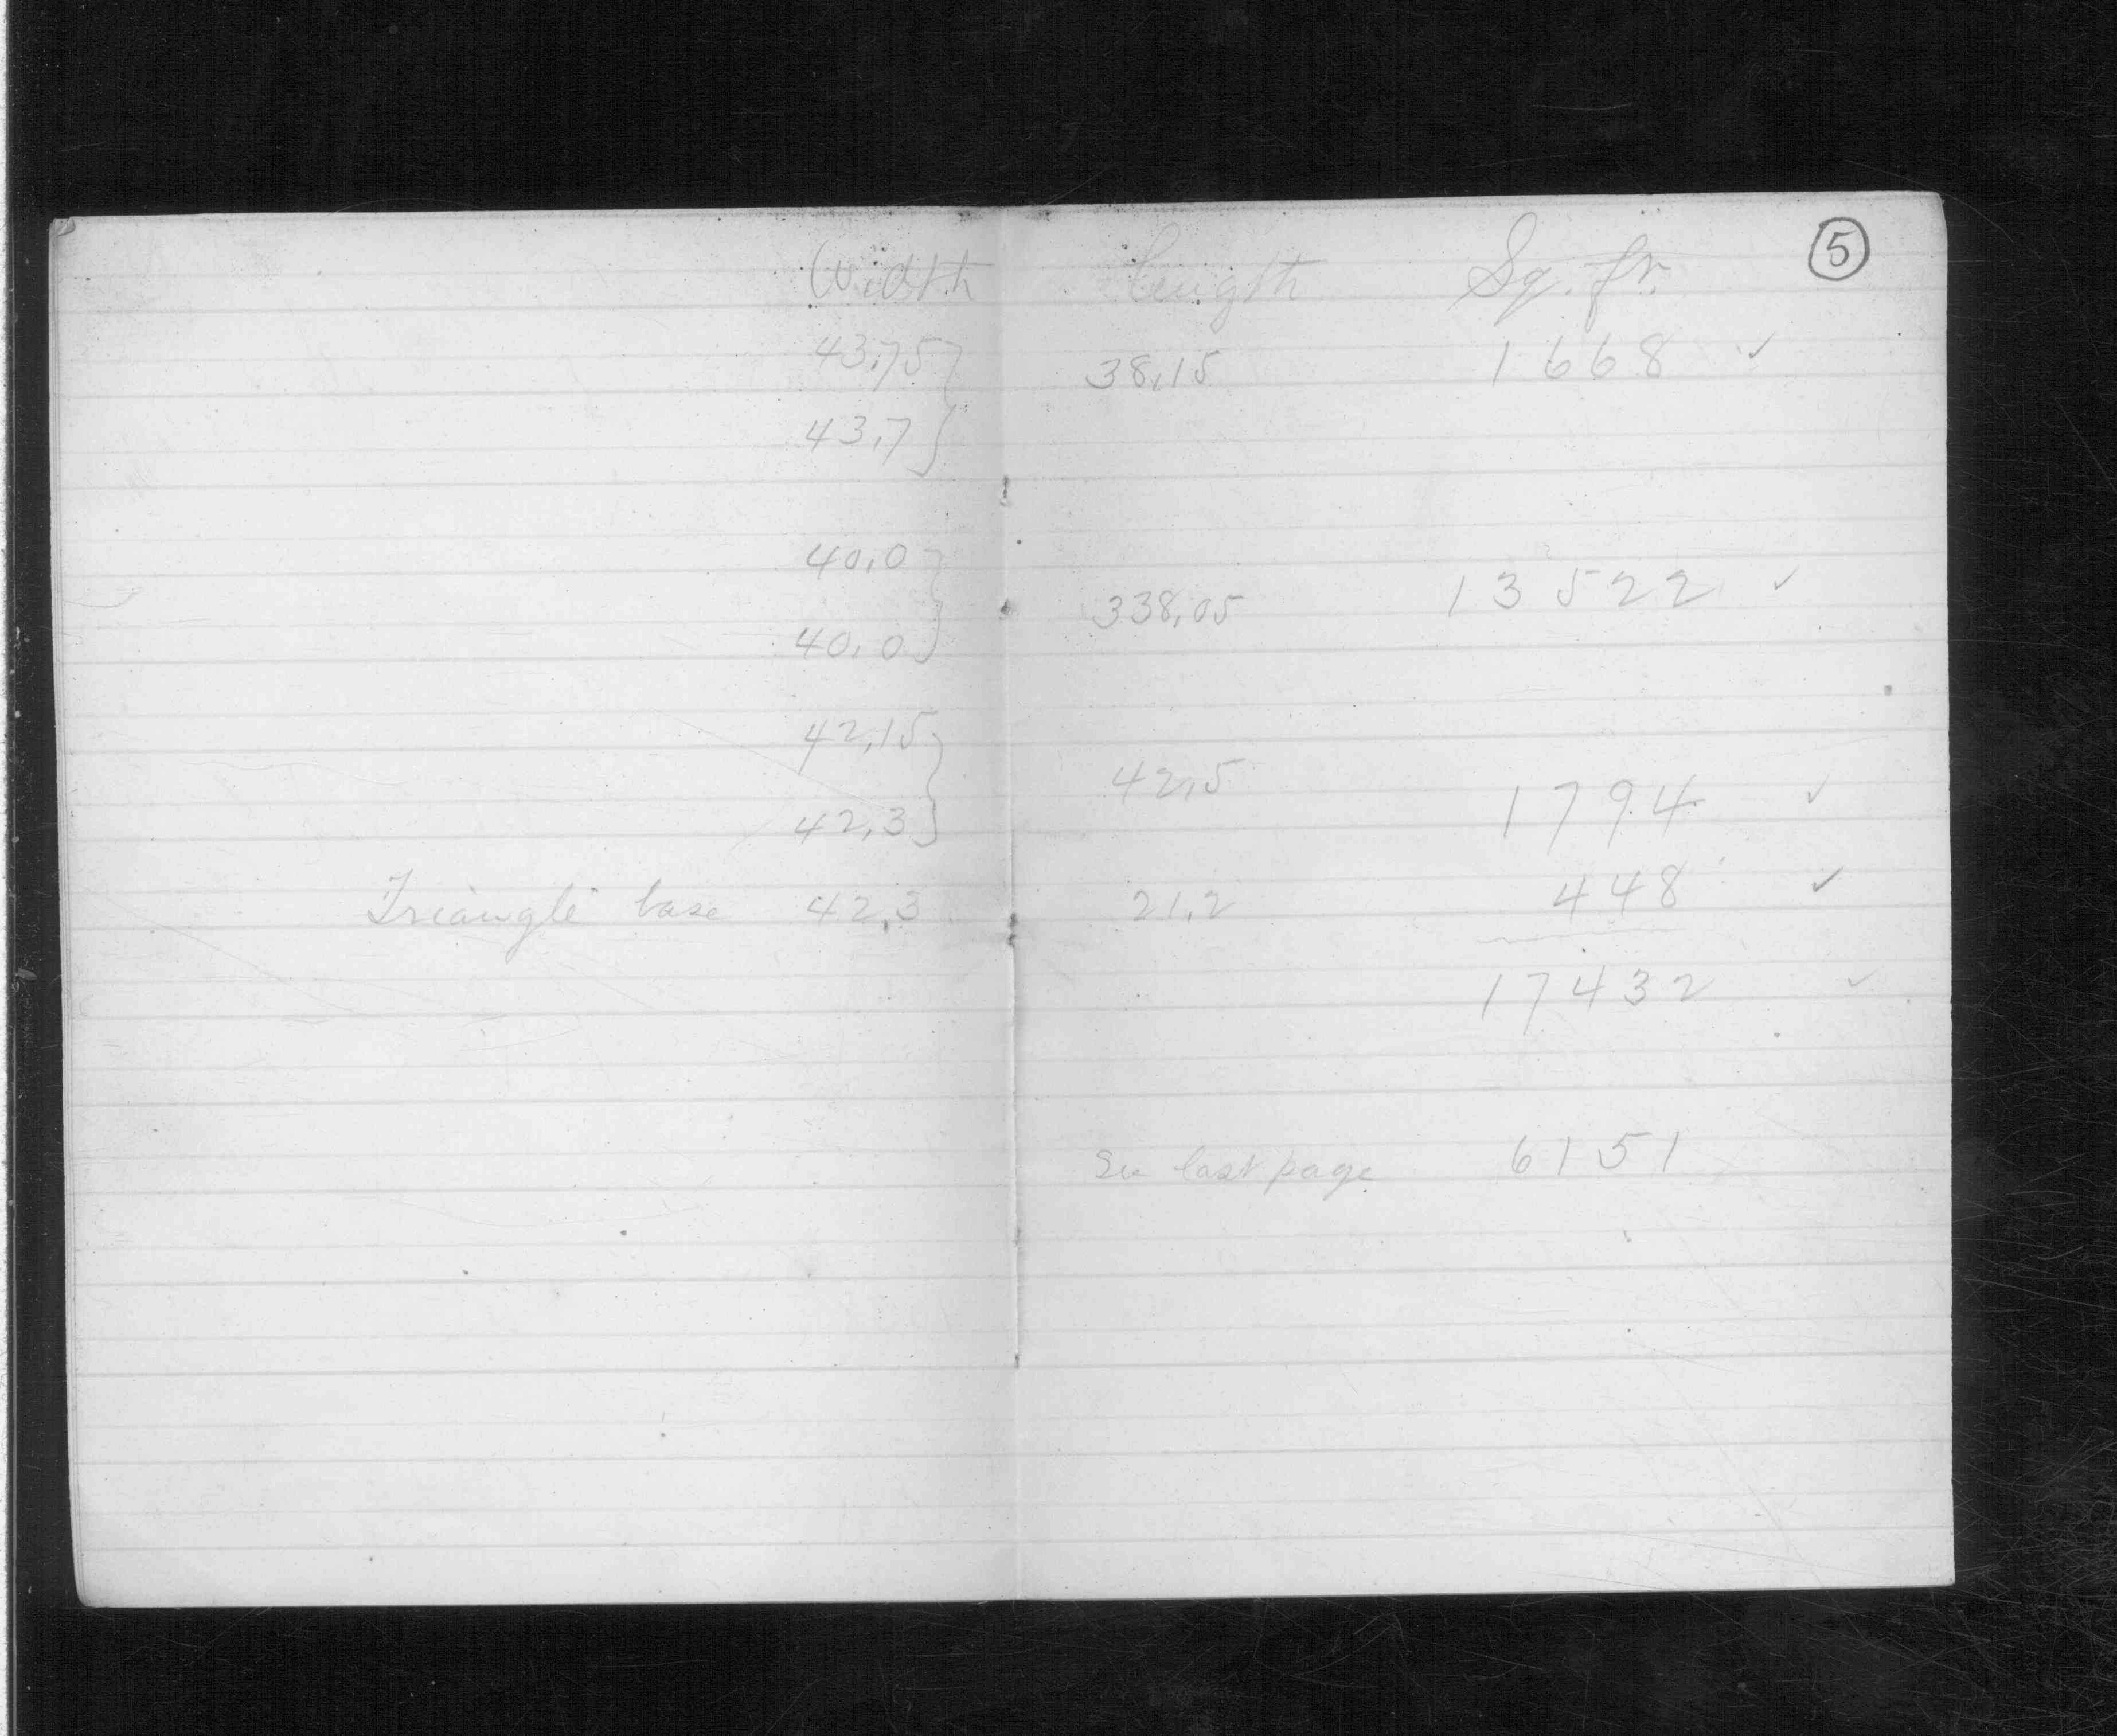 5
Width length Sq. ft.
43,75 } 38,15 1668 ✓
43,7 }
40,0 } 338,05 13522 ✓
40,0 }
42,15 } 42,5 1794 ✓
42,3 }
Triangle base 42,3 21,2 448 ✓
17432 ✓
See last page 6151